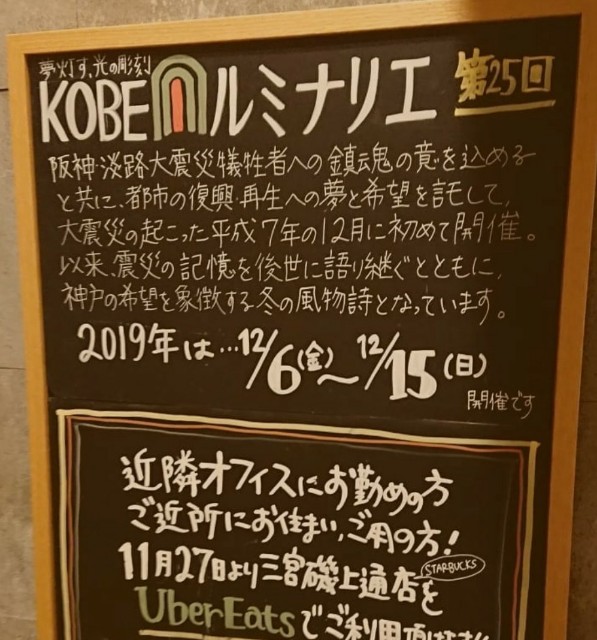 夢灯す、光の彫刻
KOBEルミナリエ 第25回
阪神・淡路大震災犠牲者への鎮魂の意を込める
と共に、都市の復興・再生への夢と希望を託して、
大震災の起こった平成7年の12月に初めて開催。
以来、震災の記憶を後世に語り継ぐとともに、
神戸の希望を象徴する冬の風物詩となっています。
2019年は…12/6(金)～12/15(日)
開催です
近隣オフィスにお勤めの方
ご近所にお住まい、ご用の方!
STARBUCKS
11月27日より三宮磯上通店を
UberEatsでご利用頂けます